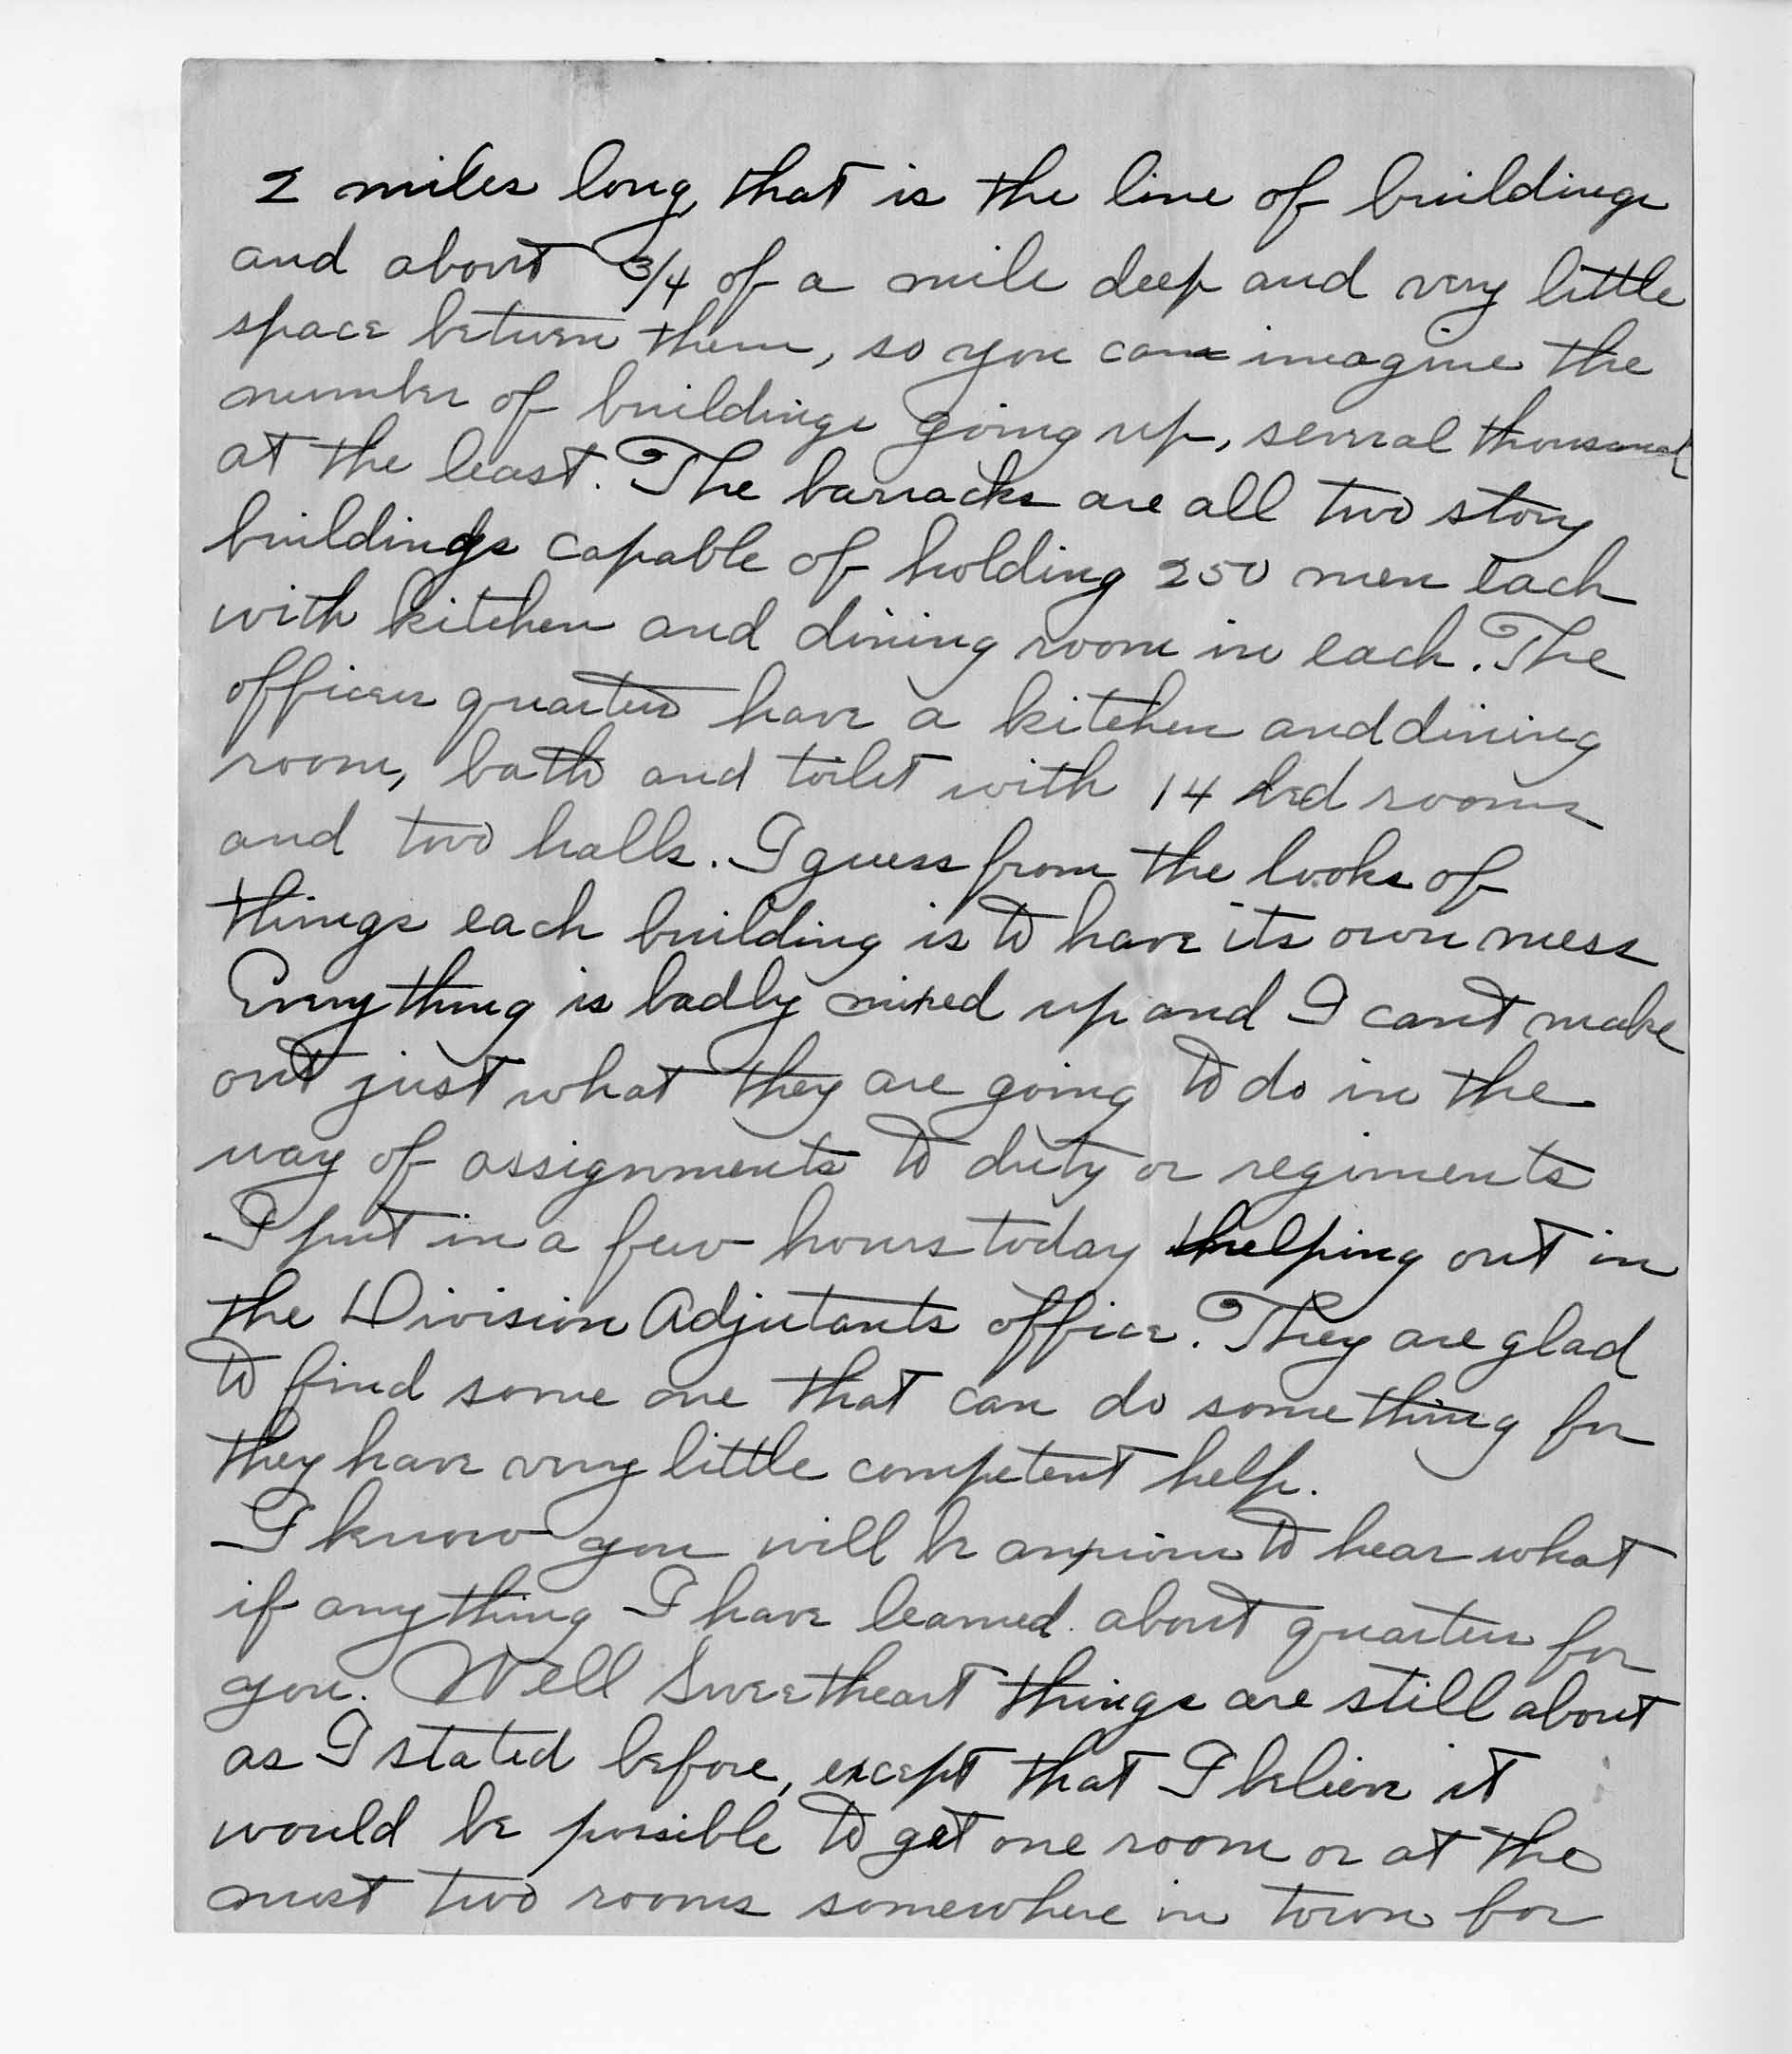 2 miles long, that is the line of buildings
and about 3/4 of a mile deep and very little
space between them, so you can imagine the
number of buildings going up, several thousand
at the least. The barracks are all two story
buildings capable of holding 250 men each
with kitchen and dining room in each. The
officers quarters have a kitchen and dining
room, bath and toilet with 14 bed rooms
and two halls. I guess from the looks of
things each building is to have its own mess
Everything is badly mixed up and I cant make
out just what they are going to do in the
way of assignments to duty or regiments
I put in a few hours today helping out in
the Division Adjutants office. They are glad
to find some one that can do something for
they have very little competent help.
I know you will be anxious to hear what
if anything I have learned about quarters for
you. Well Sweetheart things are still about
as I stated before, except that I believe it
would be possible to get one room or at the
most two rooms somewhere in town for